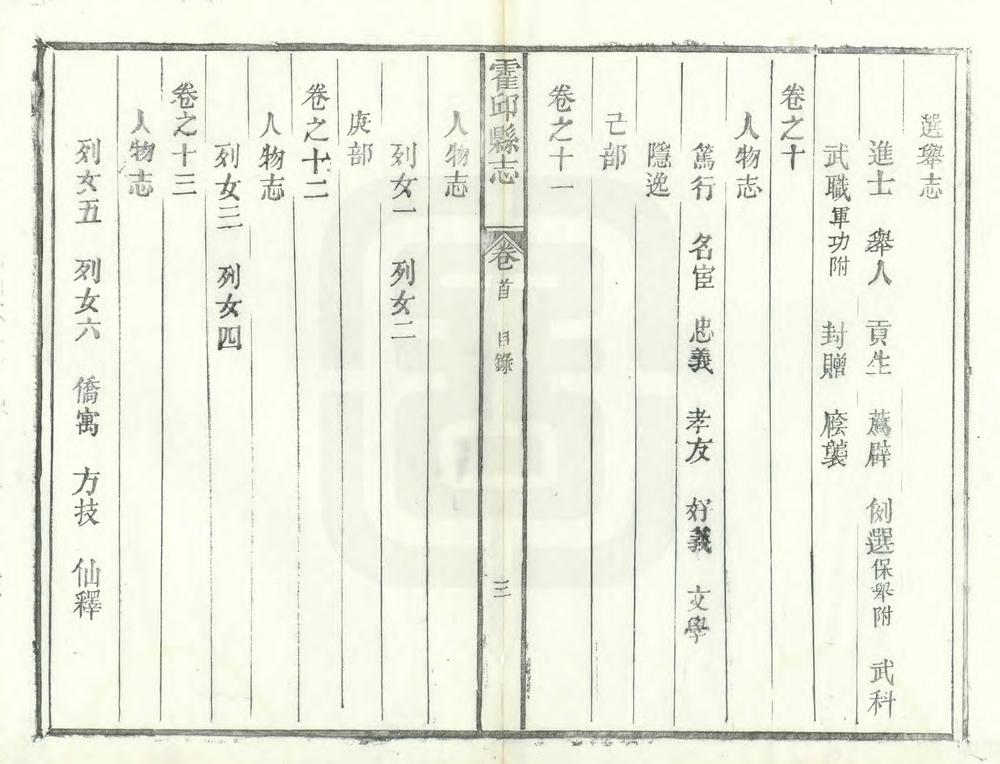 選舉志
進士 舉人 貢生 薦辟 例選保舉附 武科
武職軍功附 封贈 廕襲
卷之十
人物志
篤行 名宦 忠義 孝友 好義 文學
隱逸
己部
卷之十一
霍邱縣志 卷首 目錄 三
人物志
列女一 列女二
庚部
卷之十二
人物志
列女三 列女四
卷之十三
人物志
列女五 列女六 僑寓 方技 仙釋